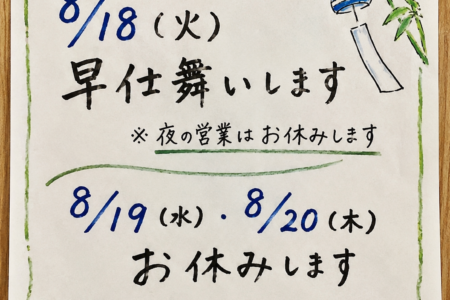 8/18(火)
早仕舞いします
※夜の営業はお休みします
8/19(水)・8/20(木)
お休みします